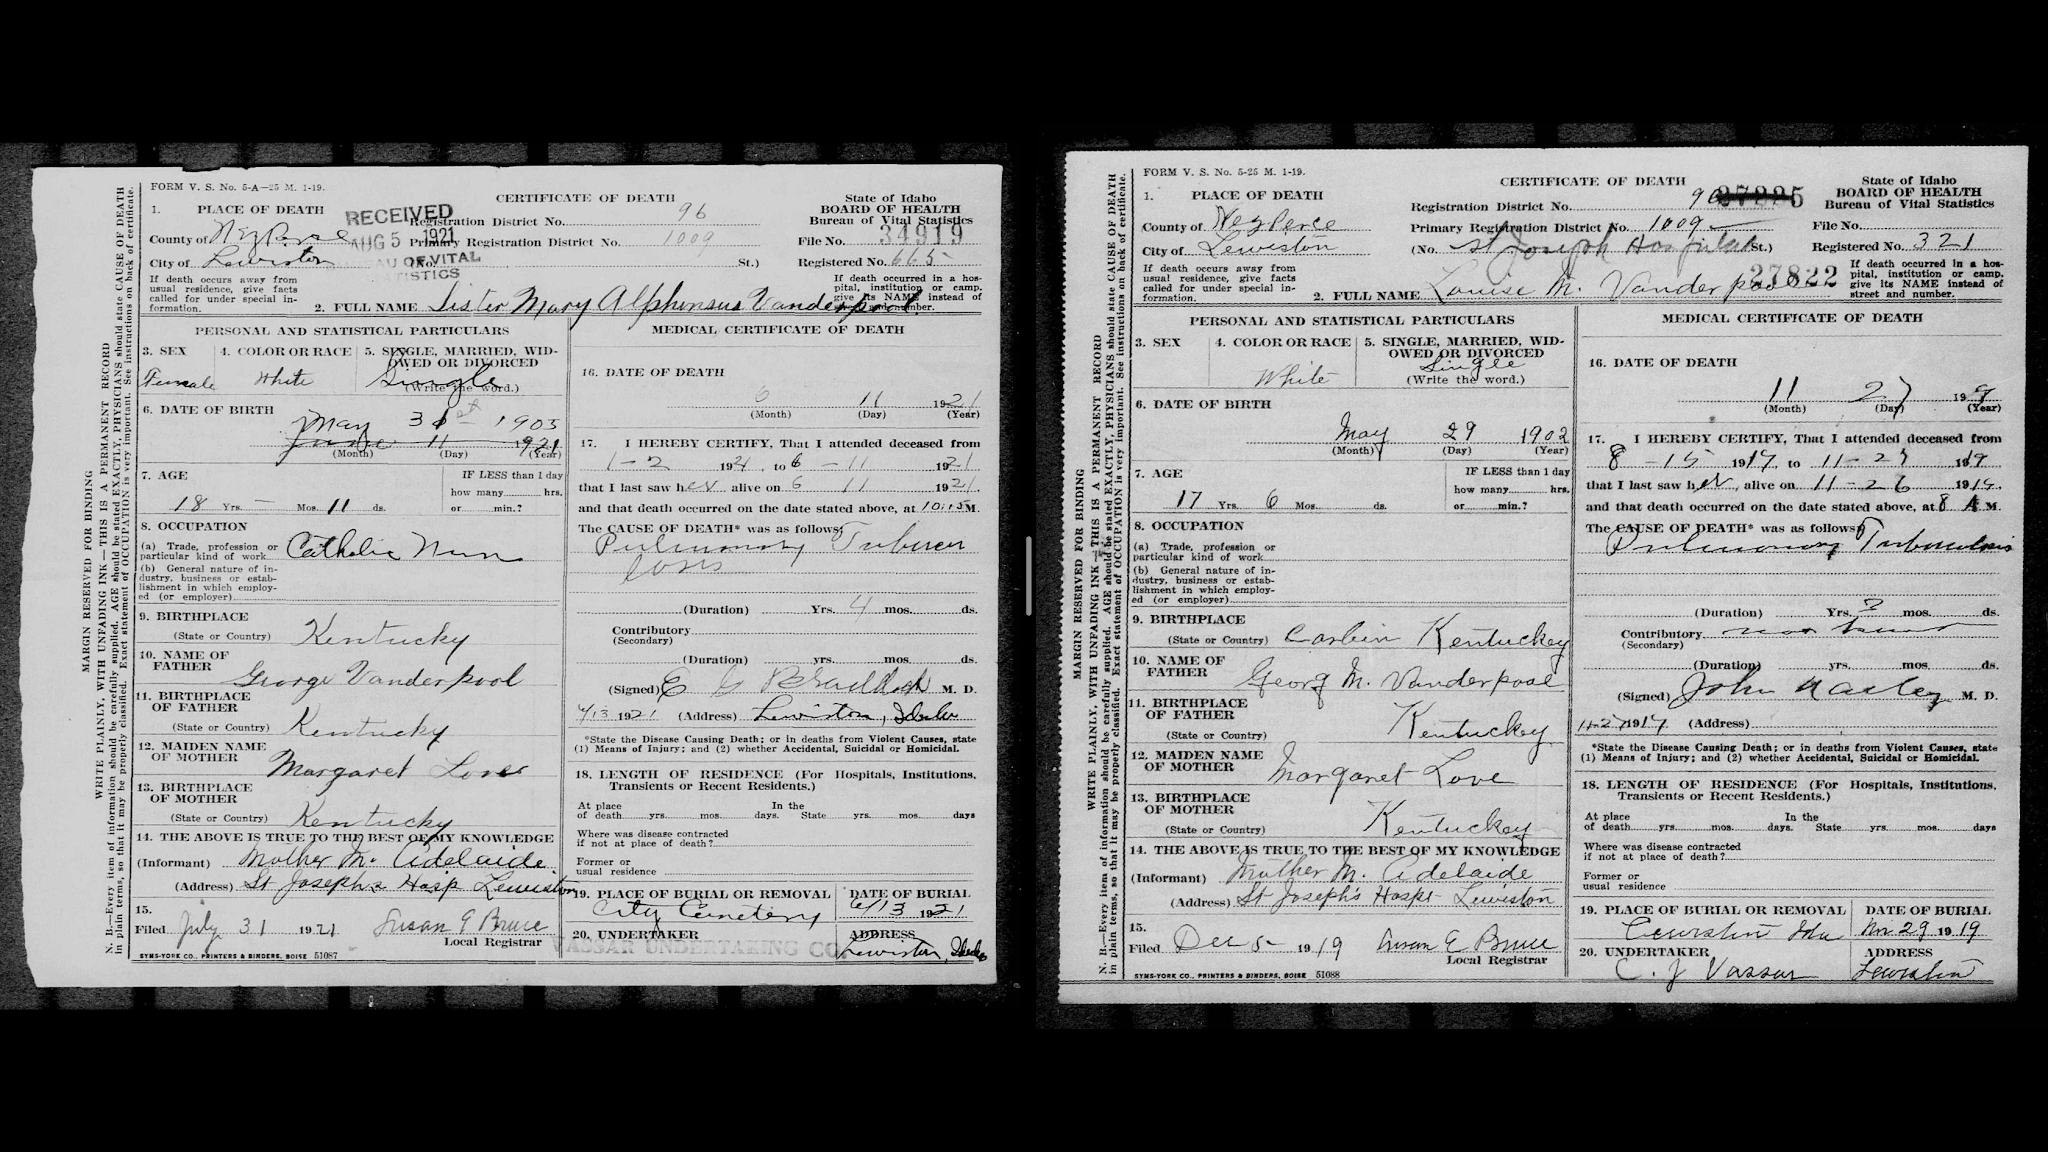 FORM V. S. No. 5-A—25 M. 1-19.
CERTIFICATE OF DEATH
State of Idaho
BOARD OF HEALTH
Bureau of Vital Statistics
1. PLACE OF DEATH
RECEIVED
AUG 5 1921
BUREAU OF VITAL
STATISTICS
Registration District No. 96
County of Nez Perce
Primary Registration District No. 1009
File No. 34919
City of Lewiston
(No. St.)
Registered No. 665
If death occurs away from
usual residence, give facts
called for under special in-
formation.
If death occurred in a hos-
pital, institution or camp,
give its NAME instead of
street and number.
2. FULL NAME Sister Mary Alphonsus Vanderpool
PERSONAL AND STATISTICAL PARTICULARS
3. SEX
Female
4. COLOR OR RACE
White
5. SINGLE, MARRIED, WID-
OWED OR DIVORCED
Single
(Write the word.)
6. DATE OF BIRTH
May 31st 1903
June 11 1921
(Month) (Day) (Year)
7. AGE
18 Yrs. — Mos. 11 ds.
IF LESS than 1 day
how many hrs.
or min.?
8. OCCUPATION
(a) Trade, profession or
particular kind of work Catholic Nun
(b) General nature of in-
dustry, business or estab-
lishment in which employ-
ed (or employer)
9. BIRTHPLACE
(State or Country) Kentucky
10. NAME OF
FATHER George Vanderpool
11. BIRTHPLACE
OF FATHER
(State or Country) Kentucky
12. MAIDEN NAME
OF MOTHER Margaret Love
13. BIRTHPLACE
OF MOTHER
(State or Country) Kentucky
14. THE ABOVE IS TRUE TO THE BEST OF MY KNOWLEDGE
(Informant) Mother M. Adelaide
(Address) St Joseph's Hosp Lewiston
15.
Filed July 31 1921 Susan E Bruce
Local Registrar
SYMS-YORK CO., PRINTERS & BINDERS, BOISE 51087
MEDICAL CERTIFICATE OF DEATH
16. DATE OF DEATH
6 11 1921
(Month) (Day) (Year)
17. I HEREBY CERTIFY, That I attended deceased from
1-2 1921, to 6-11 1921
that I last saw her alive on 6 11 1921.
and that death occurred on the date stated above, at 10:15 M.
The CAUSE OF DEATH* was as follows:
Pulmonary Tubercu
losis
(Duration) Yrs. 4 mos. ds.
Contributory
(Secondary)
(Duration) yrs. mos. ds.
(Signed) E G Braddock M. D.
6/13 1921 (Address) Lewiston, Idaho
*State the Disease Causing Death; or in deaths from Violent Causes, state
(1) Means of Injury; and (2) whether Accidental, Suicidal or Homicidal.
18. LENGTH OF RESIDENCE (For Hospitals, Institutions,
Transients or Recent Residents.)
At place In the
of death yrs. mos. days. State yrs. mos. days
Where was disease contracted
if not at place of death?
Former or
usual residence
19. PLACE OF BURIAL OR REMOVAL
City Cemetery
DATE OF BURIAL
6/13 1921
20. UNDERTAKER
VASSAR UNDERTAKING CO.
ADDRESS
Lewiston, Idaho
MARGIN RESERVED FOR BINDING
WRITE PLAINLY, WITH UNFADING INK—THIS IS A PERMANENT RECORD
N. B.—Every item of information should be carefully supplied. AGE should be stated EXACTLY, PHYSICIANS should state CAUSE OF DEATH
in plain terms, so that it may be properly classified. Exact statement of OCCUPATION is very important. See instructions on back of certificate.
FORM V. S. No. 5-25 M. 1-19.
CERTIFICATE OF DEATH
State of Idaho
BOARD OF HEALTH
Bureau of Vital Statistics
1. PLACE OF DEATH
Registration District No. 96
County of Nez Perce
Primary Registration District No. 1009
File No.
City of Lewiston
(No. St Joseph Hospital St.)
Registered No. 321
27822
If death occurs away from
usual residence, give facts
called for under special in-
formation.
If death occurred in a hos-
pital, institution or camp.
give its NAME instead of
street and number.
2. FULL NAME Louise M. Vanderpool
PERSONAL AND STATISTICAL PARTICULARS
3. SEX
4. COLOR OR RACE
White
5. SINGLE, MARRIED, WID-
OWED OR DIVORCED
Single
(Write the word.)
6. DATE OF BIRTH
May 29 1902
(Month) (Day) (Year)
7. AGE
17 Yrs. 6 Mos. ds.
IF LESS than 1 day
how many hrs.
or min.?
8. OCCUPATION
(a) Trade, profession or
particular kind of work
(b) General nature of in-
dustry, business or estab-
lishment in which employ-
ed (or employer)
9. BIRTHPLACE
(State or Country) Corbin Kentuckey
10. NAME OF
FATHER Georg M. Vanderpool
11. BIRTHPLACE
OF FATHER
(State or Country) Kentuckey
12. MAIDEN NAME
OF MOTHER Margaret Love
13. BIRTHPLACE
OF MOTHER
(State or Country) Kentuckey
14. THE ABOVE IS TRUE TO THE BEST OF MY KNOWLEDGE
(Informant) Mother M. Adelaide
(Address) St Joseph's Hospt Lewiston
15.
Filed Dec 5 1919 Susan E Bruce
Local Registrar
SYMS-YORK CO., PRINTERS & BINDERS, BOISE 51088
MEDICAL CERTIFICATE OF DEATH
16. DATE OF DEATH
11 27 1919
(Month) (Day) (Year)
17. I HEREBY CERTIFY, That I attended deceased from
8-15 1919, to 11-27 1919
that I last saw her, alive on 11-26 1919.
and that death occurred on the date stated above, at 8 A M.
The CAUSE OF DEATH* was as follows:
Pulmonary Tuberculosis
(Duration) Yrs. 3 mos. ds.
Contributory
(Secondary)
(Duration) yrs. mos. ds.
(Signed) John M. D.
11-27 1919 (Address)
*State the Disease Causing Death; or in deaths from Violent Causes, state
(1) Means of Injury; and (2) whether Accidental, Suicidal or Homicidal.
18. LENGTH OF RESIDENCE (For Hospitals, Institutions,
Transients or Recent Residents.)
At place In the
of death yrs. mos. days. State yrs. mos. days
Where was disease contracted
if not at place of death?
Former or
usual residence
19. PLACE OF BURIAL OR REMOVAL
Lewiston Ida
DATE OF BURIAL
Nov 29 1919
20. UNDERTAKER
C. J Vassar
ADDRESS
Lewiston
MARGIN RESERVED FOR BINDING
WRITE PLAINLY, WITH UNFADING INK—THIS IS A PERMANENT RECORD
N. B.—Every item of information should be carefully supplied. AGE should be stated EXACTLY, PHYSICIANS should state CAUSE OF DEATH
in plain terms, so that it may be properly classified. Exact statement of OCCUPATION is very important. See instructions on back of certificate.